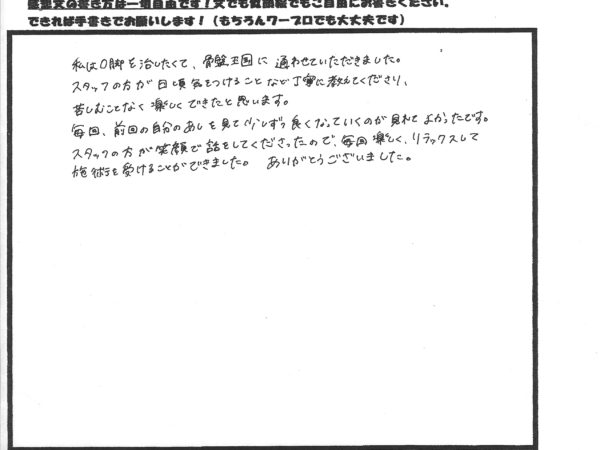 感想文の書き方は一切自由です！文でも質問絵でもご自由にお書きください。
できれば手書きでお願いします！（もちろんワープロでも大丈夫です）
私はO脚を治したくて、骨盤王国に通わせていただきました。
スタッフの方が日頃気をつけることなど丁寧に教えてくださり、
苦しむことなく楽しくできたと思います。
毎回、前回の自分のあしを見て少しずつ良くなっていくのが見れてよかったです。
スタッフの方が笑顔で話をしてくださったので、毎回楽しく、リラックスして
施術を受けることができました。 ありがとうございました。